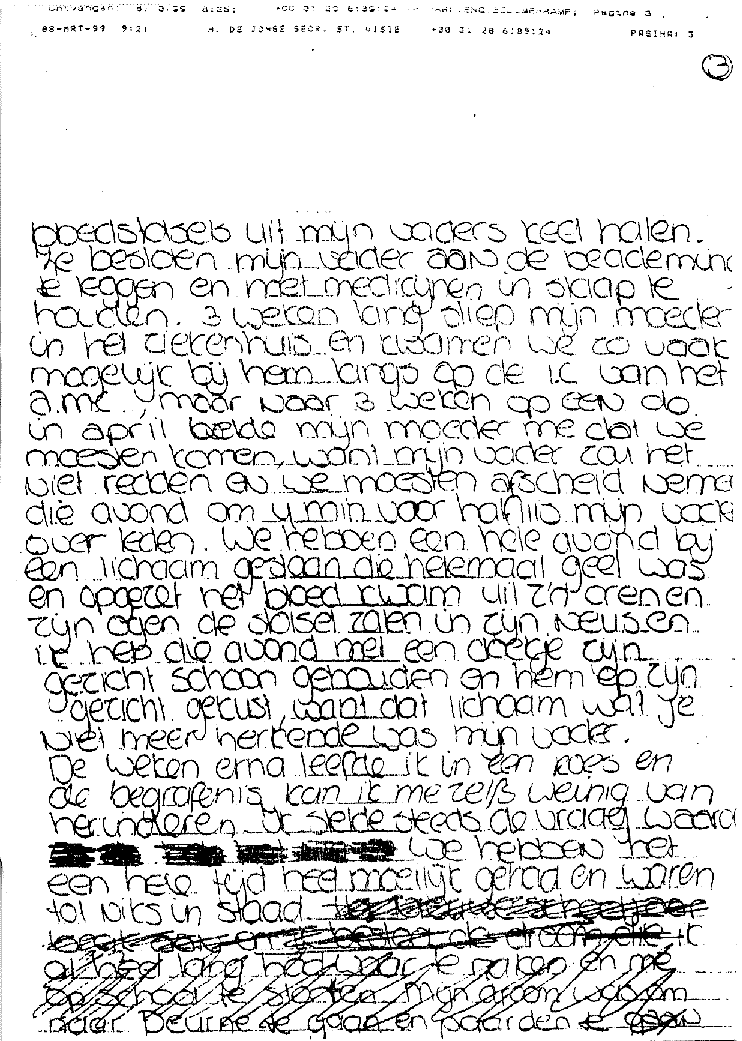 08-MRT-99 9:21 H. DE JONGE SECR. ST. 41518 +00 31 20 6189124 PAGINA: 3
3
bloedstolsels uit mijn vaders keel halen.
Ze besloten mijn vader aan de beademing
te leggen en met medicijnen in slaap te
houden. 3 weken lang sliep mijn moeder
in het ziekenhuis en kwamen we zo vaak
mogelijk bij hem langs op de i.c van het
a.mc, maar naar 3 weken op een do.
in april belde mijn moeder me dat we
moesten komen, want mijn vader zou het
niet redden en we moesten afscheid neme
die avond om 4 min voor half is mijn vade
over leden. We hebben een hele avond bij
een lichaam gestaan die helemaal geel was
en opgezet het bloed kwam uit z'n oren en
zijn ogen de stolsel zaten in zijn neus en
ik heb die avond met een doekje zijn
gezicht schoon gehouden en hem op zijn
gezicht gekust, want dat lichaam wat je
niet meer herkende was mijn vader.
De weken erna leefde ik in een roes en
de begrafenis kan ik me zelf weinig van
herinderen. Ik stelde steeds de vraag waaro
We hebben het
een hele tijd heel moeilijk gehad en waren
tot niks in staat
ik
al heel lang had waar te maken en me
op school te storten. Mijn droom was om
naar Deurne te gaan en paarden te